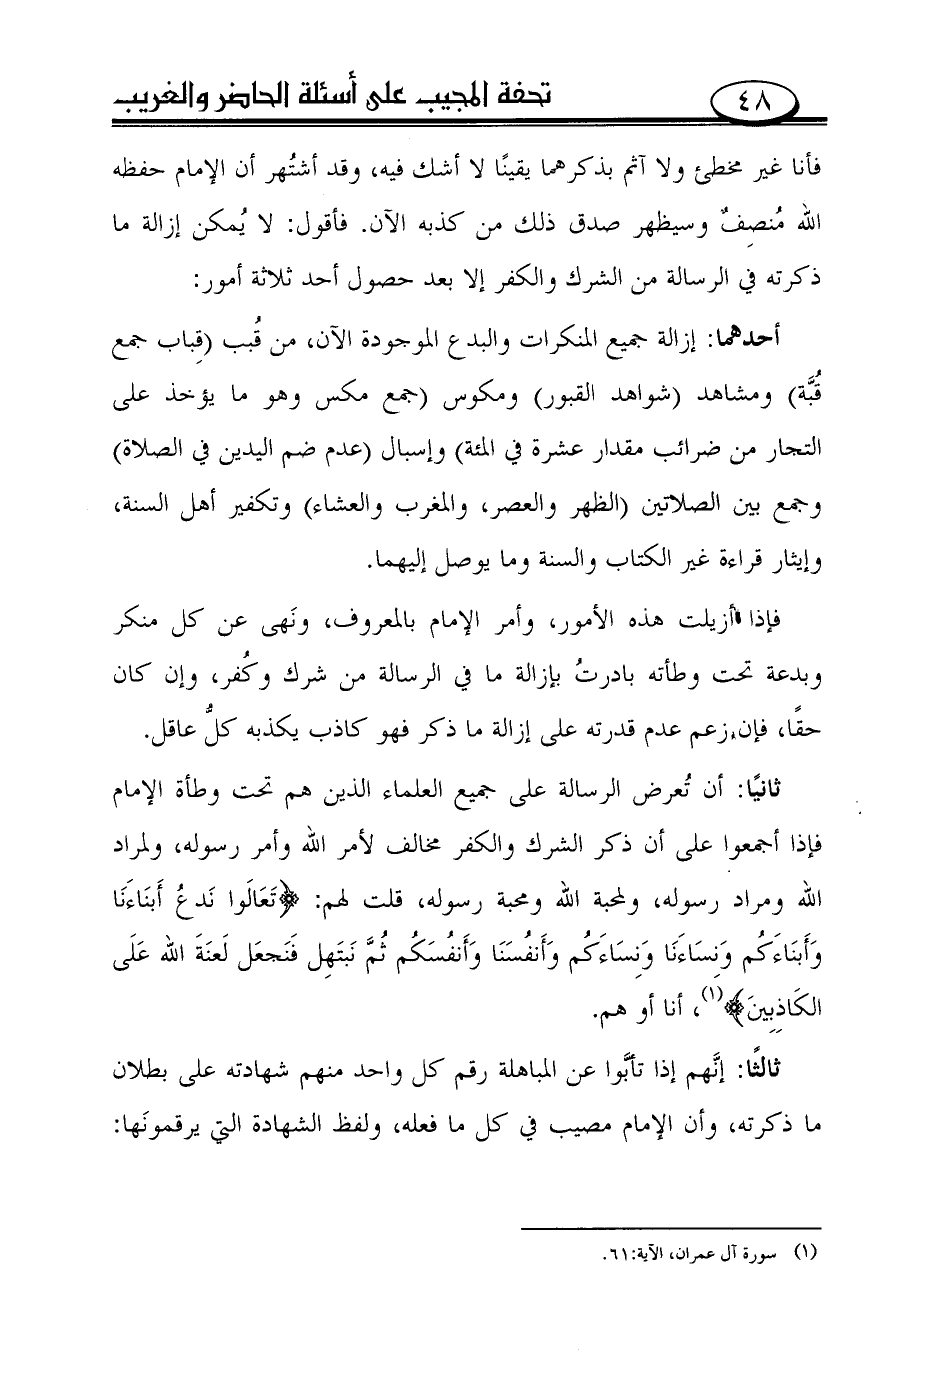 ٤٨ تحفة المجيب على أسئلة الحاضر والغريب
فأنا غير مخطئ ولا آثم بذكرهما يقينًا لا أشك فيه، وقد أشتُهر أن الإمام حفظه
الله مُنصِفٌ وسيظهر صدق ذلك من كذبه الآن. فأقول: لا يُمكن إزالة ما
ذكرته في الرسالة من الشرك والكفر إلا بعد حصول أحد ثلاثة أمور:
أحدهما: إزالة جميع المنكرات والبدع الموجودة الآن، من قُبب (قِباب جمع
قُبَّة) ومشاهد (شواهد القبور) ومكوس (جمع مكس وهو ما يؤخذ على
التجار من ضرائب مقدار عشرة في المئة) وإسبال (عدم ضم اليدين في الصلاة)
وجمع بين الصلاتين (الظهر والعصر، والمغرب والعشاء) وتكفير أهل السنة،
وإيثار قراءة غير الكتاب والسنة وما يوصل إليهما.
فإذا أزيلت هذه الأمور، وأمر الإمام بالمعروف، ونَهى عن كل منكر
وبدعة تحت وطأته بادرتُ بإزالة ما في الرسالة من شرك وكُفر، وإن كان
حقًا، فإن زعم عدم قدرته على إزالة ما ذكر فهو كاذب يكذبه كلُّ عاقل.
ثانيًا: أن تُعرض الرسالة على جميع العلماء الذين هم تحت وطأة الإمام
فإذا أجمعوا على أن ذكر الشرك والكفر مخالف لأمر الله وأمر رسوله، ولمراد
الله ومراد رسوله، ولمحبة الله ومحبة رسوله، قلت لهم: ﴿تَعَالَوا نَدعُ أَبنَاءَنَا
وَأَبنَاءَكُم وَنِسَاءَنَا وَنِسَاءَكُم وَأَنفُسَنَا وَأَنفُسَكُم ثُمَّ نَبتَهِل فَنَجعَل لَعنَةَ الله عَلَى
الكَاذِبِينَ﴾(١)، أنا أو هم.
ثالثًا: إنَّهم إذا تأبَّوا عن المباهلة رقم كل واحد منهم شهادته على بطلان
ما ذكرته، وأن الإمام مصيب في كل ما فعله، ولفظ الشهادة التي يرقمونَها:
(١) سورة آل عمران، الآية:٦١.